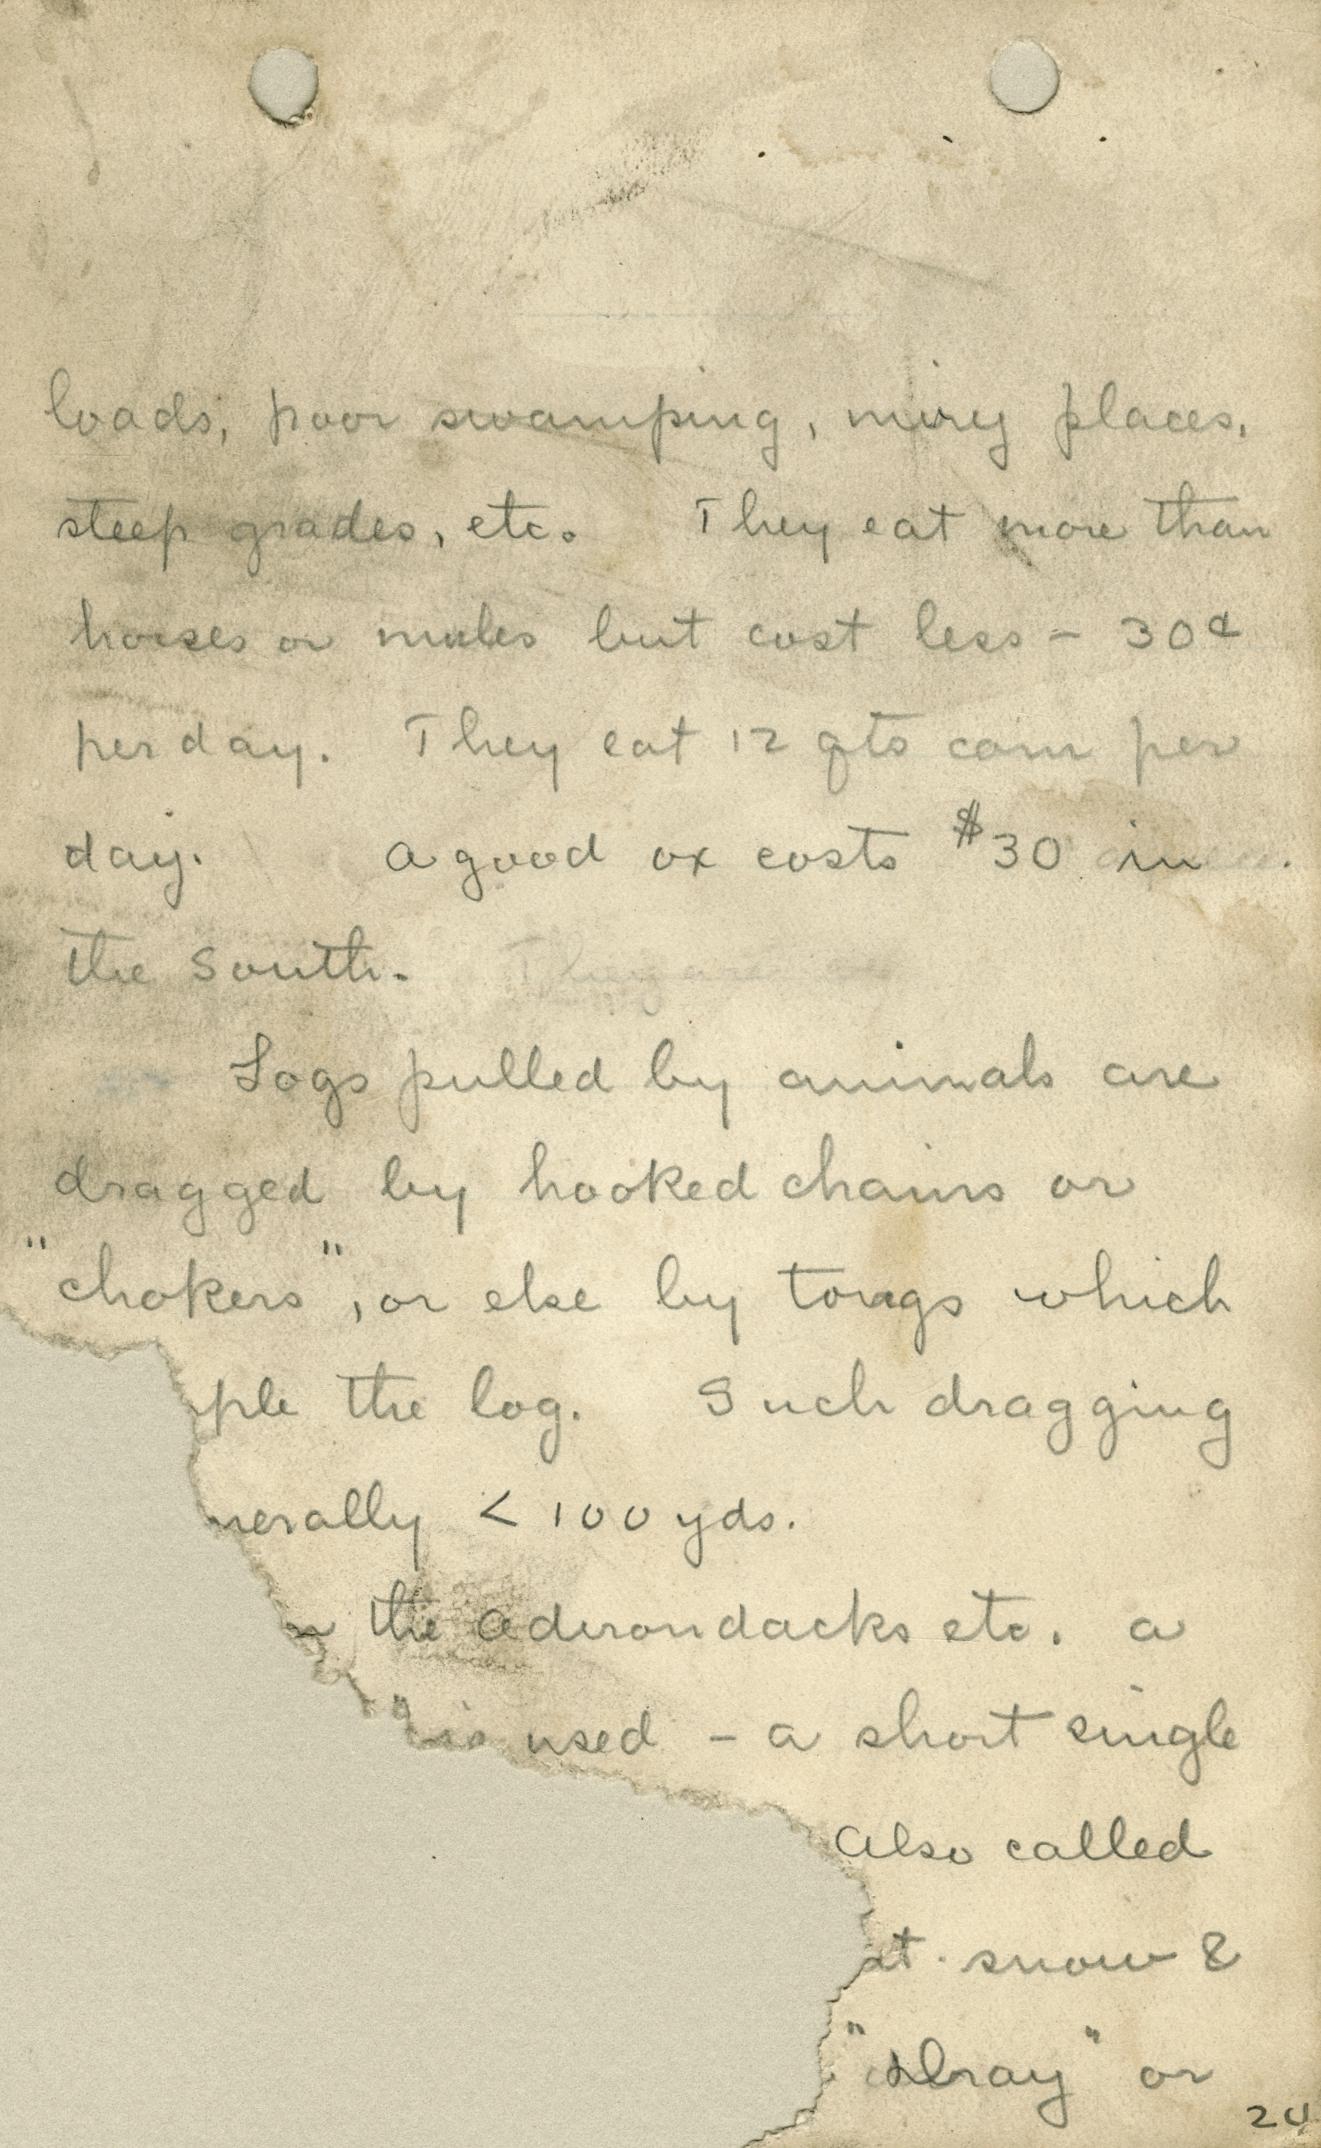 loads, poor swamping, miry places,
steep grades, etc. They eat more than
horses or mules but cost less - 30¢
per day. They eat 12 qts corn per
day. A good ox costs $30 in
the South. They are
Logs pulled by animals are
dragged by hooked chains or
"chokers", or else by tongs which
ple the log. Such dragging
nerally < 100 yds.
n the Adirondacks etc. a
" is used - a short single
Also called
at snow &
"dray" or
24